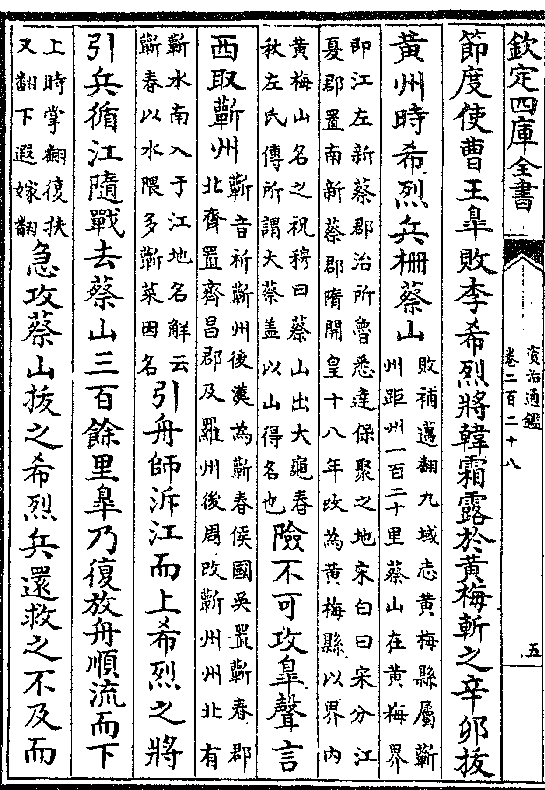 欽定四庫全書
資治通鑑
卷二百二十八
五
節度使曹王臯敗李希烈將韓霜露於黃梅斬之辛卯拔
黃州時希烈兵柵蔡山
敗補邁翻九域志黃梅縣屬蘄
州距州一百二十里蔡山在黃梅界
即江左新蔡郡治所魯悉達保聚之地宋白曰宋分江
夏郡置南新蔡郡隋開皇十八年改為黃梅縣以界內
黃梅山名之祝穆曰蔡山出大龜春
秋左氏傳所謂大蔡蓋以山得名也
險不可攻臯聲言
西取蘄州
蘄音祈蘄州後漢為蘄春侯國吳置蘄春郡
北齊置齊昌郡及羅州後周改蘄州州北有
蘄水南入于江地名解云
蘄春以水隈多蘄菜因名
引舟師泝江而上希烈之將
引兵循江隨戰去蔡山三百餘里臯乃復放舟順流而下
上時掌翻復扶
又翻下遐嫁翻
急攻蔡山拔之希烈兵還救之不及而